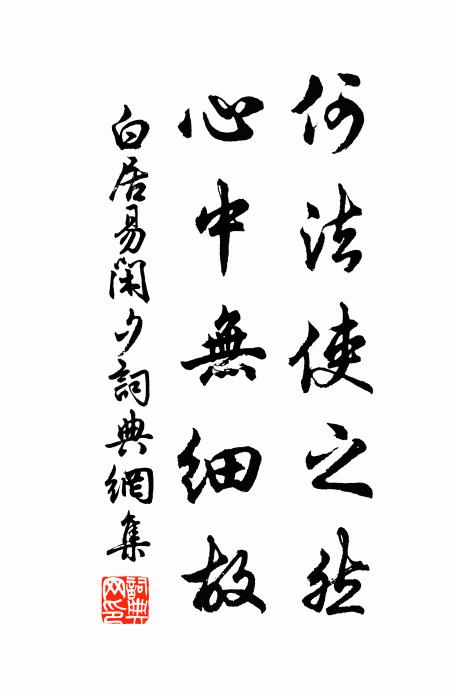 何法使之然
心中無細故
白居易閑夕詞典網集
詞典網印